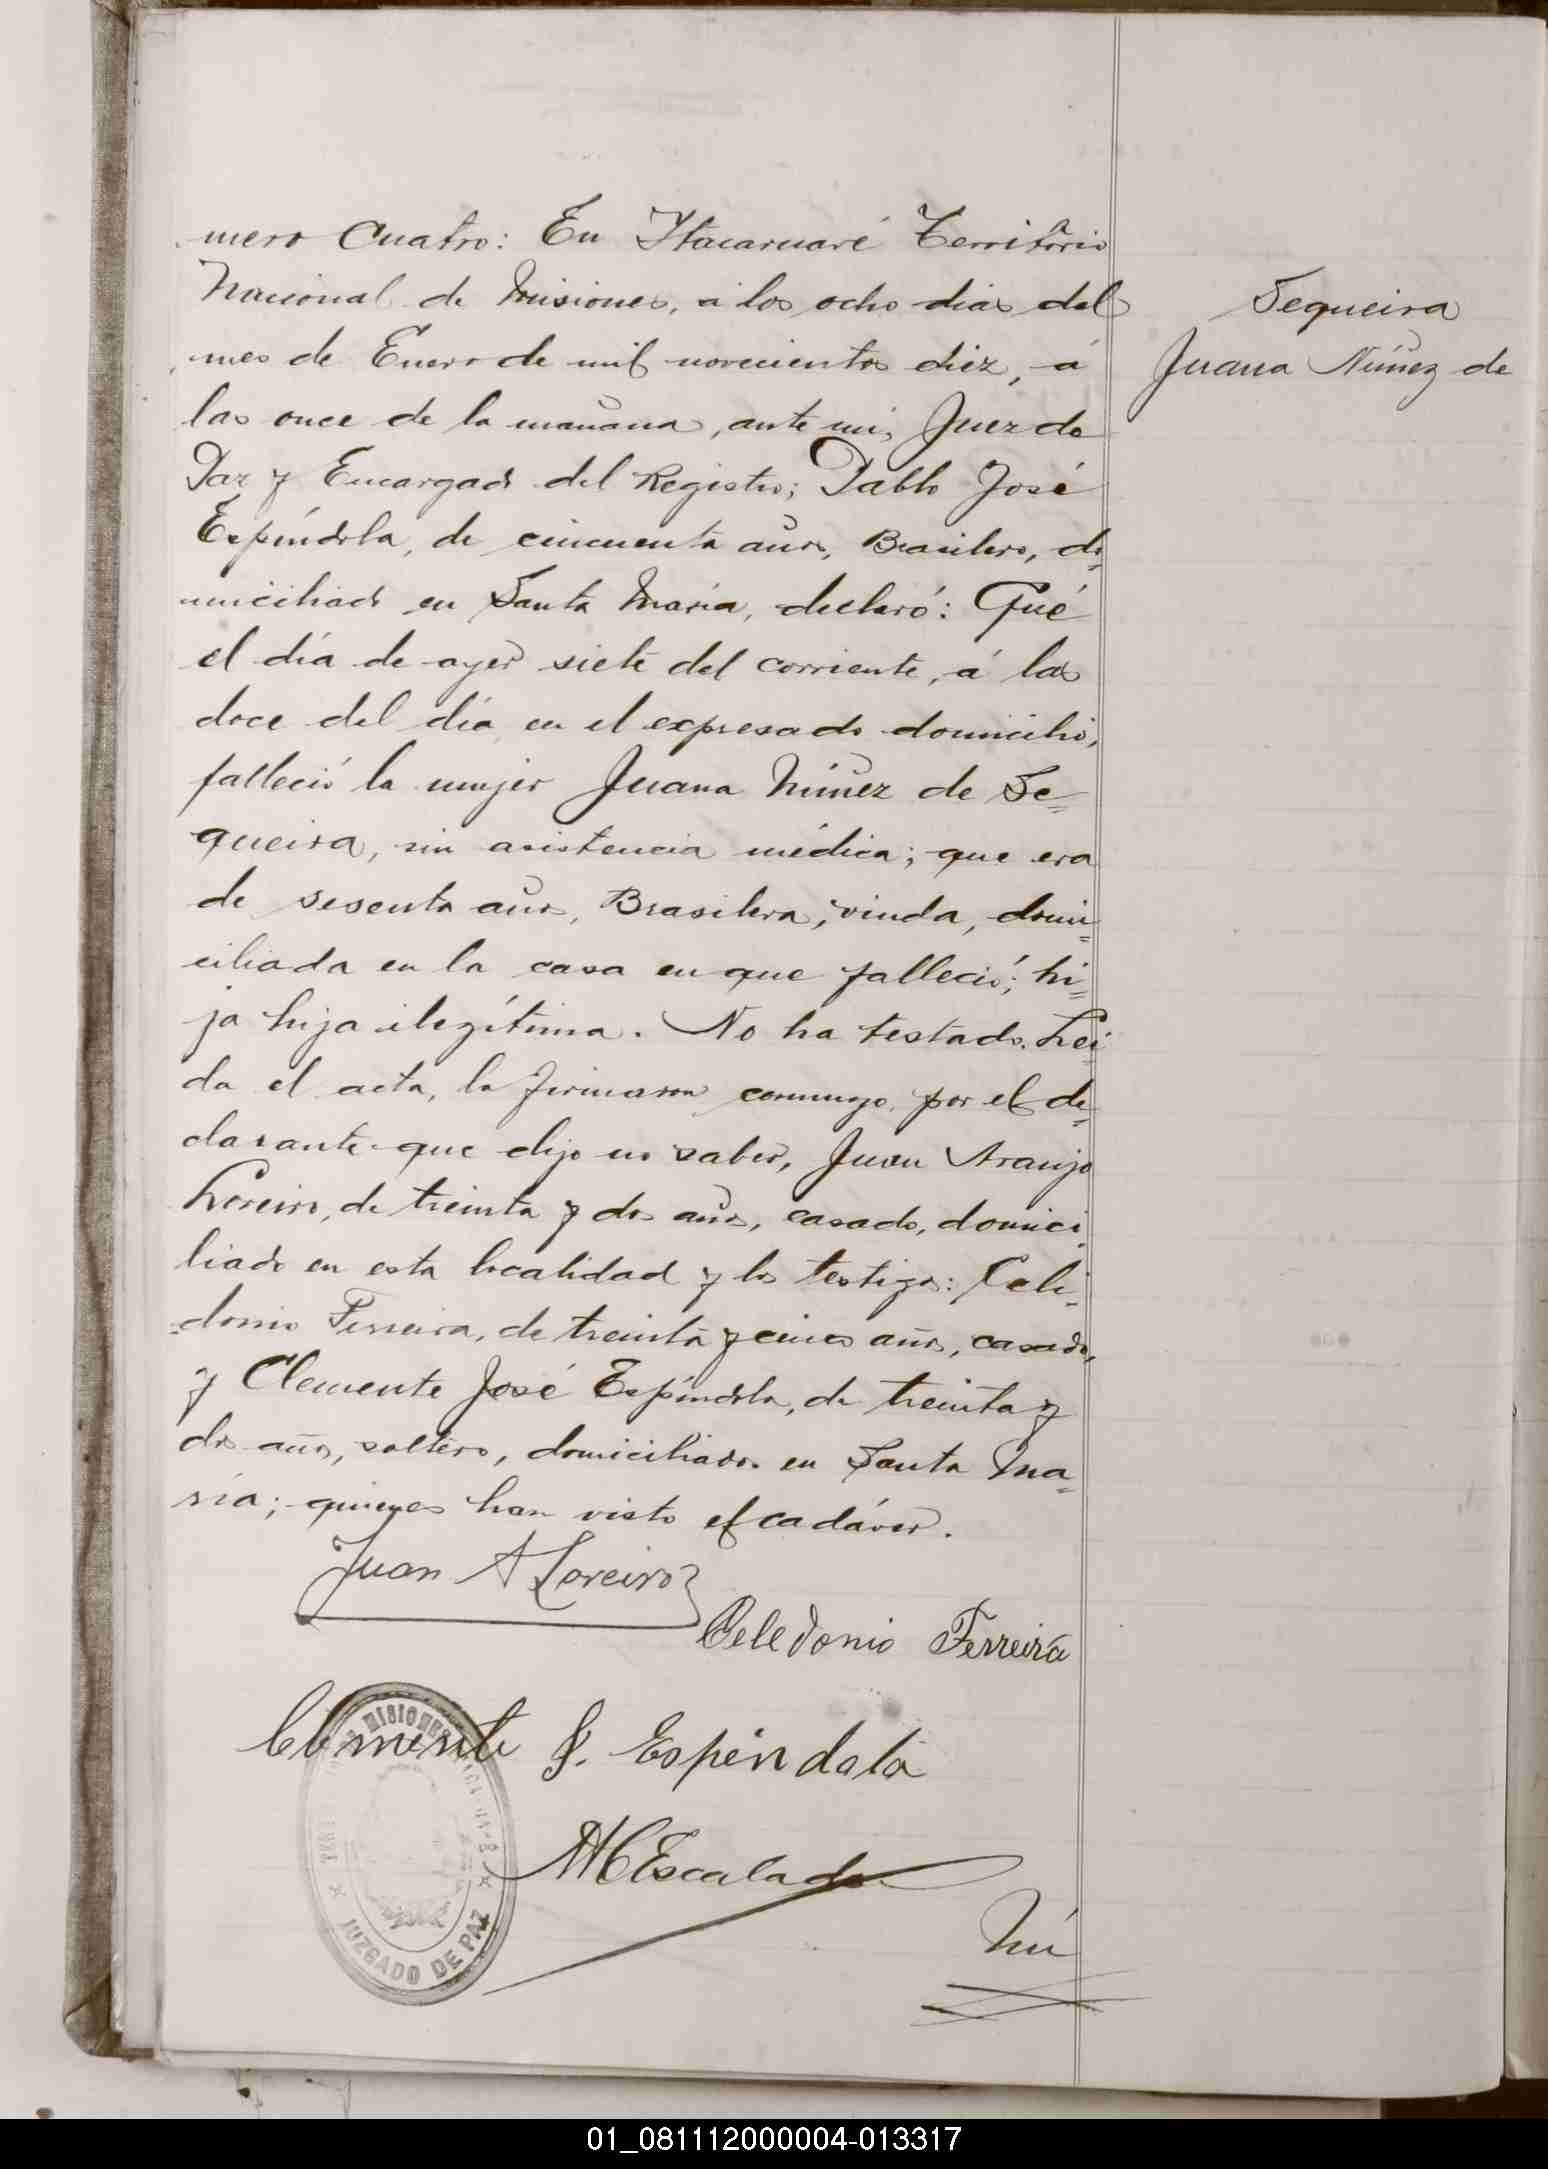 mero Cuatro: En Itacaruaré Territorio
Nacional de Misiones, á los ocho dias del
mes de Enero de mil novecientos diez, á
las once de la mañana, ante mi, Juez de
Paz y Encargado del Registro; Pablo José
Espíndola, de cincuenta años, Brasilero, do=
miciliado en Santa María, declaró: Qué
el día de ayer siete del corriente, á las
doce del día, en el expresado domicilio,
falleció la mujer Juana Núñez de Se=
queira, sin asistencia médica; que era
de sesenta años, Brasilera, viuda, domi=
ciliada en la casa en que falleció; hi=
ja hija ilegítima. No ha testado. Lei
da el acta, la firmaron conmigo, por el de=
clarante que dijo no saber, Juan Araujo
Loreiro, de treinta y dos años, casado, domici
liado en esta localidad y los testigos: Celi=
=donio Ferreira, de treinta y cinco años, casado,
y Clemente José Espíndola, de treinta y
dos años, soltero, domiciliados en Santa Ma=
ría; quienes han visto el cadáver.
Sequeira
Juana Núñez de
Juan A Loreiro
Celedonio Ferreira
Clemente J. Espindala
Escalada
JUZGADO DE PAZ
MISIONES
Nú
01_081112000004-013317